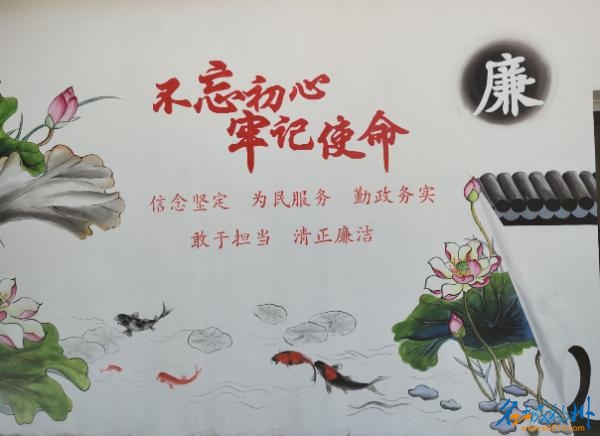 廉
不忘初心
牢记使命
信念坚定 为民服务 勤政务实
敢于担当 清正廉洁